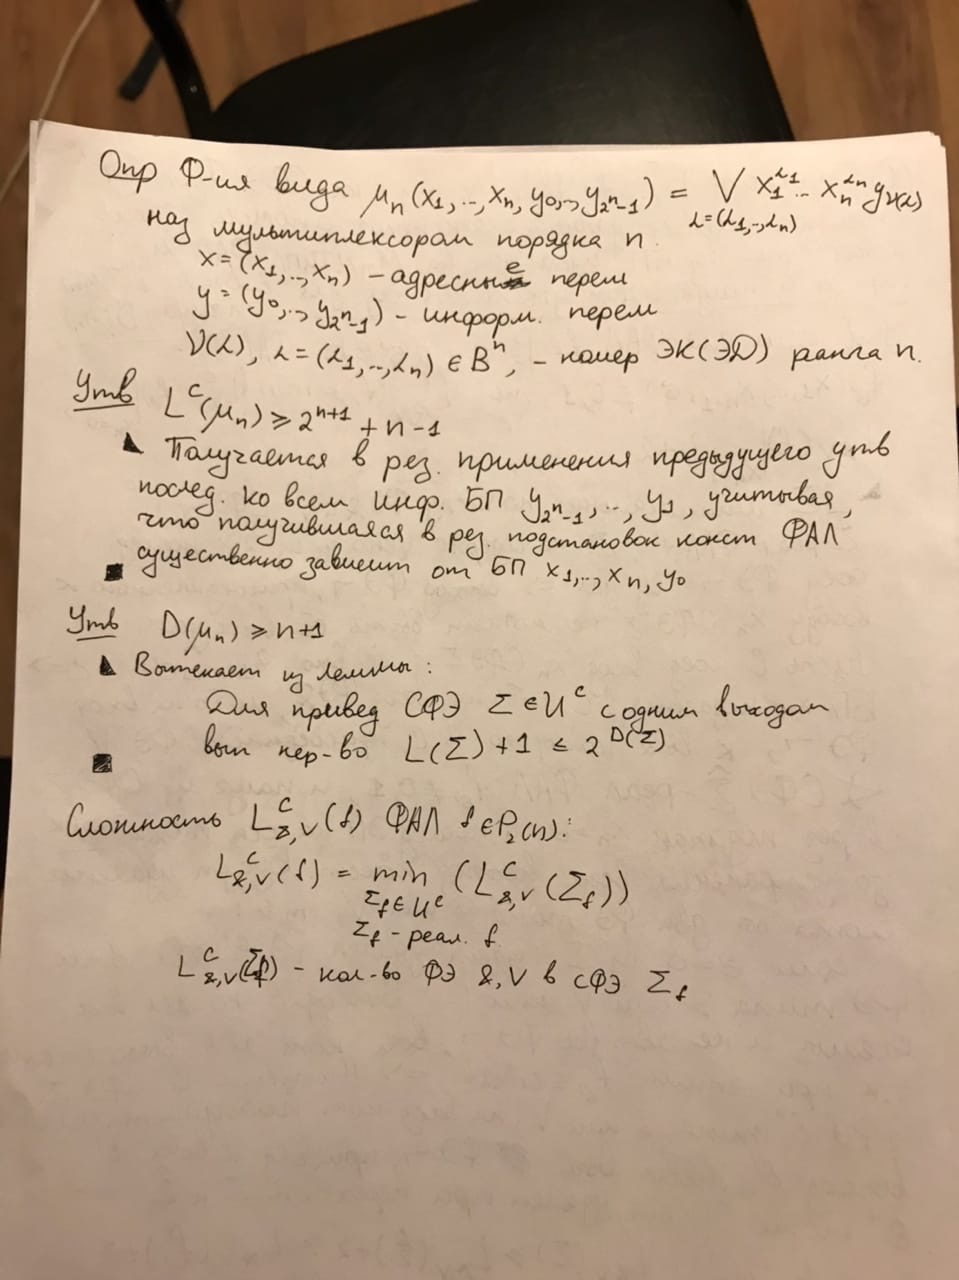 Опр Ф-ия вида μₙ(x₁,..,xₙ, y₀,..,y_{2ⁿ-1}) = ⋁_{α=(α₁,..,αₙ)} x₁^{α₁}..xₙ^{αₙ} y_{ν(α)}
наз мультиплексором порядка n.
x=(x₁,..,xₙ) – адресные перем
y=(y₀,..,y_{2ⁿ-1}) – информ. перем
ν(α), α=(α₁,..,αₙ)∈Bⁿ, – номер ЭК(ЭД) ранга n.
Утв L^C(μₙ) ⩾ 2^{n+1} + n - 1
Получается в рез. применения предыдущего утв
послед. ко всем инф. БП y_{2ⁿ-1},..,y₁, учитывая,
что получившаяся в рез. подстановок конст ФАЛ
существенно зависит от БП x₁,..,xₙ, y₀
Утв D(μₙ) ⩾ n+1
Вытекает из леммы:
Для привед СФЭ Σ∈U^C с одним выходом
вып нер-во L(Σ)+1 ≤ 2^{D(Σ)}
Сложность L^C_{&,∨}(f) ФАЛ f∈P₂(n):
L^C_{&,∨}(f) = min (L^C_{&,∨}(Σ_f))
Σ_f∈U^C
Σ_f – реал. f
L^C_{&,∨}(Σ_f) – кол-во ФЭ &,∨ в СФЭ Σ_f